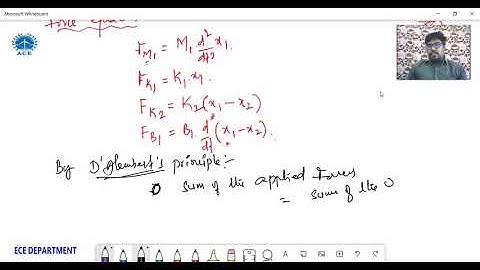 Microsoft Whiteboard
Force
ACE
F_{M_1} = M_1 \frac{d^2}{dt^2} x_1.
F_{K_1} = K_1 x_1.
F_{K_2} = K_2 (x_1 - x_2)
F_{B_1} = B_1 \frac{d}{dt} (x_1 - x_2).
By D'Alembert's principle :-
sum of the applied forces
= sum of the o
ECE DEPARTMENT